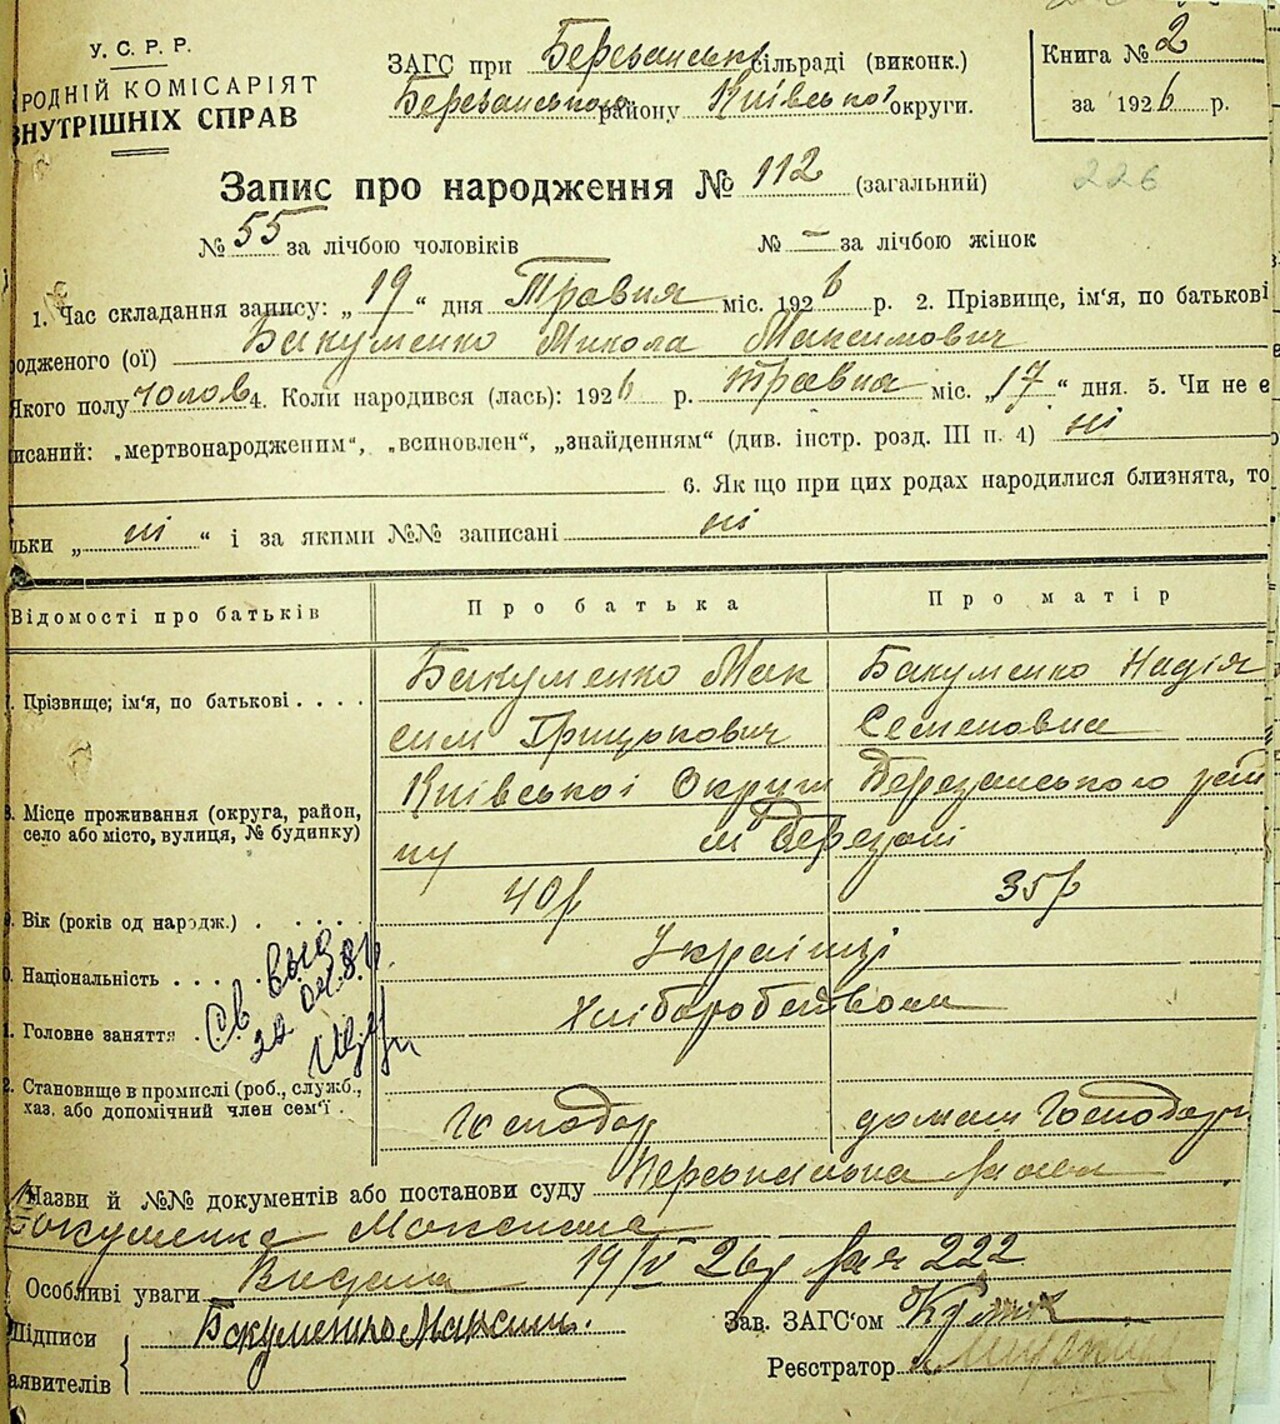 У. С. Р. Р.
РОДНІЙ КОМІСАРІЯТ
ВНУТРІШНІХ СПРАВ
ЗАГС при Березанськ сільраді (виконк.)
Березанського району Київської округи.
Книга № 2
за 1926 р.
Запис про народження № 112 (загальний)
226
№ 55 за лічбою чоловіків № – за лічбою жінок
1. Час складання запису: „19“ дня Травня міс. 1926 р. 2. Прізвище, ім'я, по батькові
родженого (ої) Бакуменко Микола Максимович
Якого полу чолов 4. Коли народився (лась): 1926 р. травня міс. „17“ дня. 5. Чи не є
исаний: „мертвонародженим“, „всиновлен“, „знайденням“ (див. інстр. розд. III п. 4) ні
6. Як що при цих родах народилися близнята, то
льки „ ні “ і за якими №№ записані ні
Відомості про батьків Про батька Про матір
Прізвище; ім'я, по батькові . . . . Бакуменко Мак Бакуменко Надія
сим Грицькович Семеновна
Місце проживання (округа, район,
село або місто, вулиця, № будинку)
Київської Округи Березанського рай
ну м Березані
Вік (років од народж.) . . . . . 40р 35р
Національність . . . . Українці
Головне заняття . Хліборобством
Св. выд
Становище в промислі (роб., служб.,
хаз. або допомічний член сем'ї .
Господар домаш Господарк
Назви й №№ документів або постанови суду Персональна
Бакуменка Максима
Особливі уваги Видана 19/V 26р 222
Підписи
аявителів
Бакуменко Максим.
Зав. ЗАГС'ом
Реєстратор